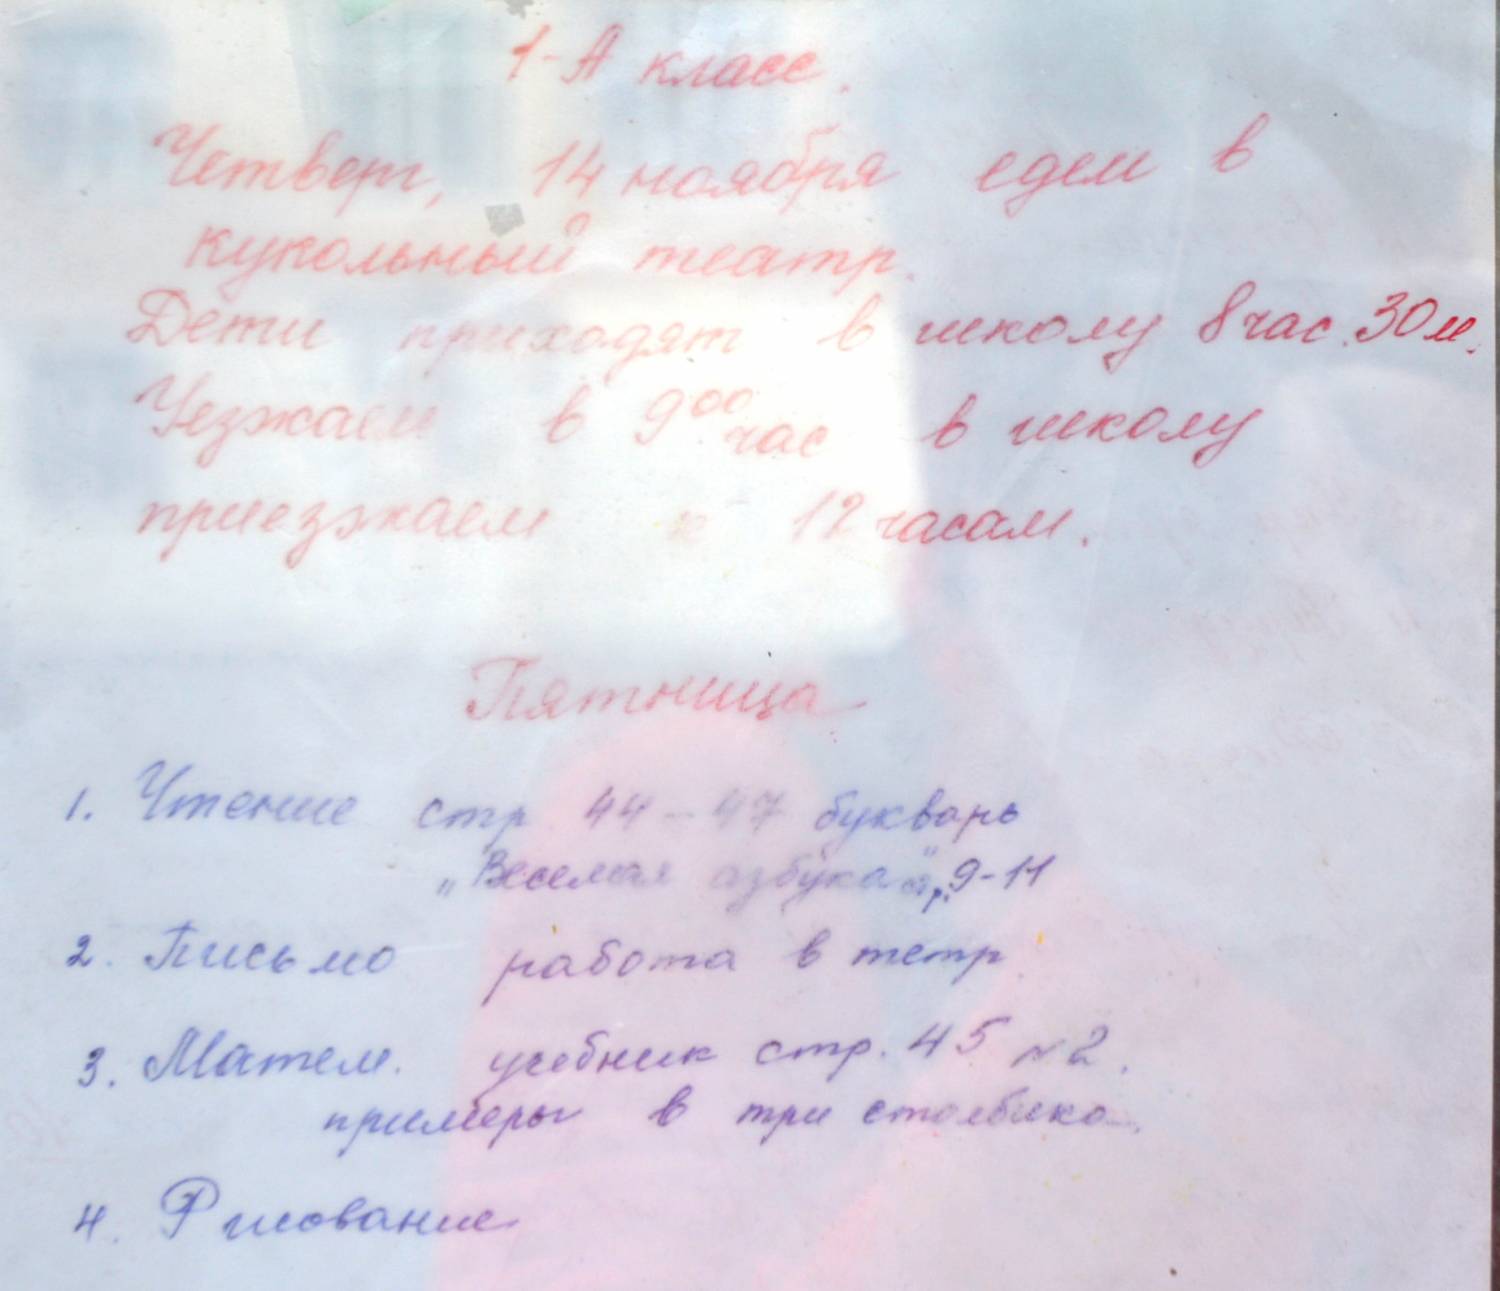 1-А класс.
Четверг, 14 ноября едем в
кукольный театр.
Дети приходят в школу 8 час. 30 м.
Уезжаем в 9⁰⁰ час в школу
приезжаем к 12 часам.
Пятница
1. Чтение стр 44-47 букварь
„Веселая азбука" стр. 9-11
2. Письмо работа в тетр
3. Матем. учебник стр. 45 №2.
примеры в три столбика.
4. Рисование